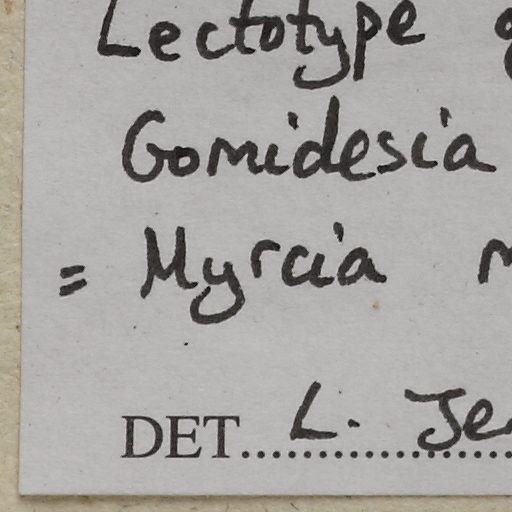 Lectotype
Gomidesia
= Myrcia
DET. L. Je